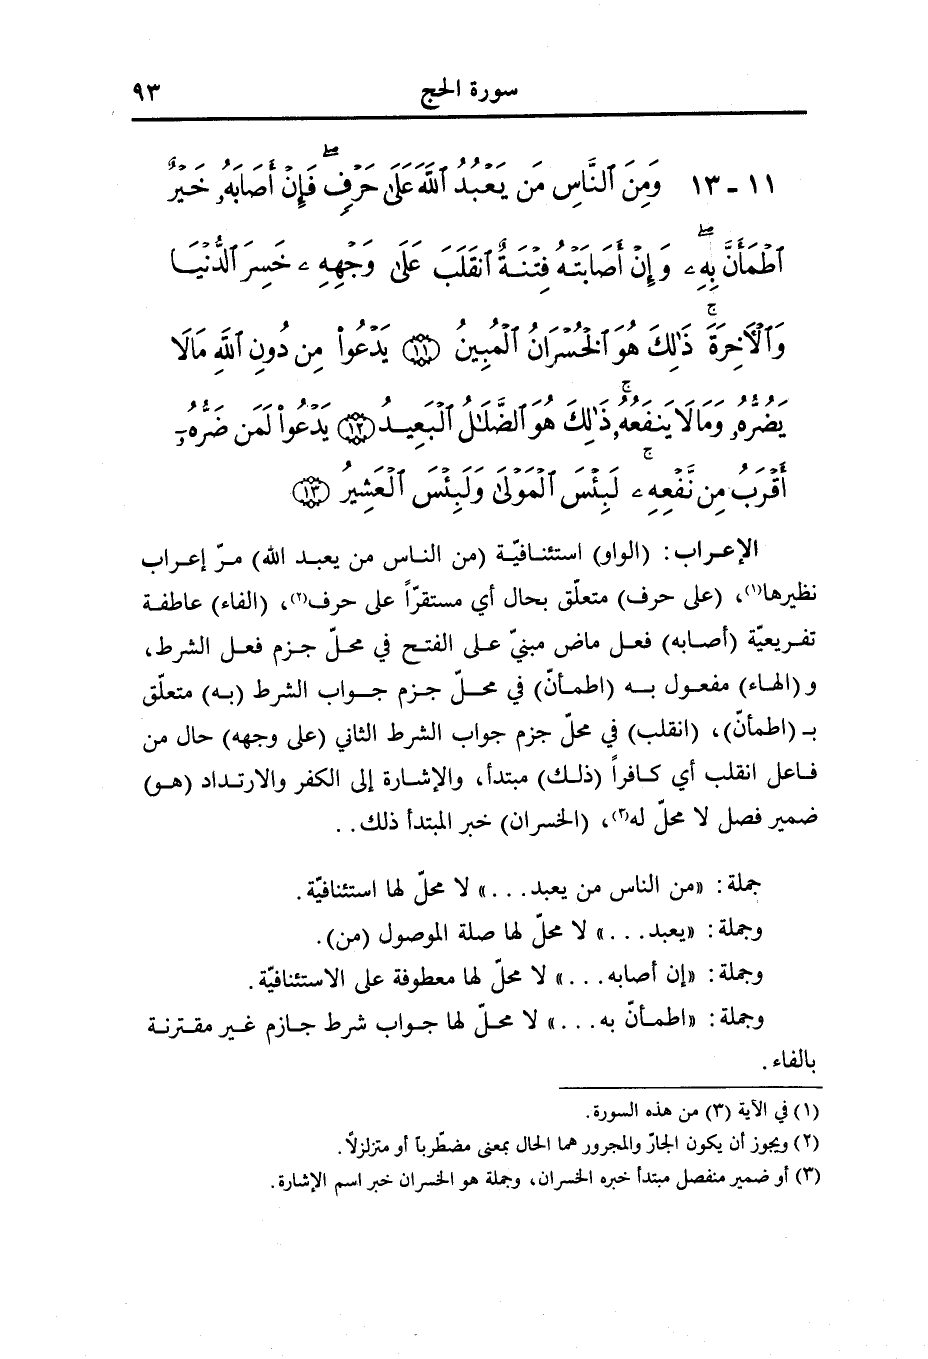 سورة الحج ٩٣
١١ - ١٣ وَمِنَ ٱلنَّاسِ مَن يَعۡبُدُ ٱللَّهَ عَلَىٰ حَرۡفٖۖ فَإِنۡ أَصَابَهُۥ خَيۡرٌ
ٱطۡمَأَنَّ بِهِۦۖ وَإِنۡ أَصَابَتۡهُ فِتۡنَةٌ ٱنقَلَبَ عَلَىٰ وَجۡهِهِۦ خَسِرَ ٱلدُّنۡيَا
وَٱلۡأٓخِرَةَۚ ذَٰلِكَ هُوَ ٱلۡخُسۡرَانُ ٱلۡمُبِينُ ﴿١١﴾ يَدۡعُواْ مِن دُونِ ٱللَّهِ مَالَا
يَضُرُّهُۥ وَمَالَا يَنفَعُهُۥۚ ذَٰلِكَ هُوَ ٱلضَّلَٰلُ ٱلۡبَعِيدُ ﴿١٢﴾ يَدۡعُواْ لَمَن ضَرُّهُۥٓ
أَقۡرَبُ مِن نَّفۡعِهِۦۚ لَبِئۡسَ ٱلۡمَوۡلَىٰ وَلَبِئۡسَ ٱلۡعَشِيرُ ﴿١٣﴾
الإعراب: (الواو) استئنافيّة (من الناس من يعبد الله) مرّ إعراب
نظيرها(١)، (على حرف) متعلّق بحال أي مستقرّاً على حرف(٢)، (الفاء) عاطفة
تفريعيّة (أصابه) فعل ماض مبنيّ على الفتح في محلّ جزم فعل الشرط،
و (الهاء) مفعول به (اطمأنّ) في محلّ جزم جواب الشرط (به) متعلّق
بـ (اطمأنّ)، (انقلب) في محلّ جزم جواب الشرط الثاني (على وجهه) حال من
فاعل انقلب أي كافراً (ذلك) مبتدأ، والإشارة إلى الكفر والارتداد (هو)
ضمير فصل لا محلّ له(٣)، (الخسران) خبر المبتدأ ذلك..
جملة: «من الناس من يعبد...» لا محلّ لها استئنافيّة.
وجملة: «يعبد...» لا محلّ لها صلة الموصول (من).
وجملة: «إن أصابه...» لا محلّ لها معطوفة على الاستئنافيّة.
وجملة: «اطمأنّ به...» لا محلّ لها جواب شرط جازم غير مقترنة
بالفاء.
(١) في الآية (٣) من هذه السورة.
(٢) ويجوز أن يكون الجارّ والمجرور هما الحال بمعنى مضطّرباً أو متزلزلاً.
(٣) أو ضمير منفصل مبتدأ خبره الخسران، وجملة هو الخسران خبر اسم الإشارة.